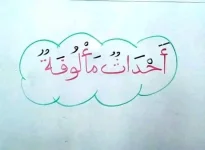 أَحْدَاثٌ مَأْلُوفَةٌ